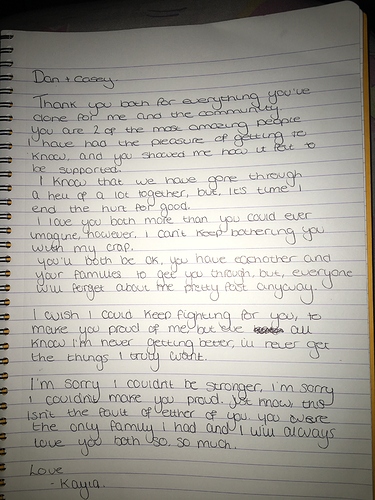 Dan + Casey.
Thank you both for everything you've
done for me and the community.
You are 2 of the most amazing people
I have had the pleasure of getting to
know, and you showed me how it felt to
be supported.
I know that we have gone through
a hell of a lot together, but, it's time I
end the hurt for good.
I love you both more than you could ever
imagine, however, I can't keep bothering you
with my crap.
you'll both be ok, you have eachother and
your families to get you through, but, everyone
will forget about me pretty fast anyway.
I wish I could keep fighting for you, to
make you proud of me but we all
know I'm never getting better, ill never get
the things I truly want.
I'm sorry I couldnt be stronger, i'm sorry
i couldnt make you proud. just know, this
isn't the fault of either of you. you were
the only family I had and I will always
love you both so, so much.
Love
- Kayla.